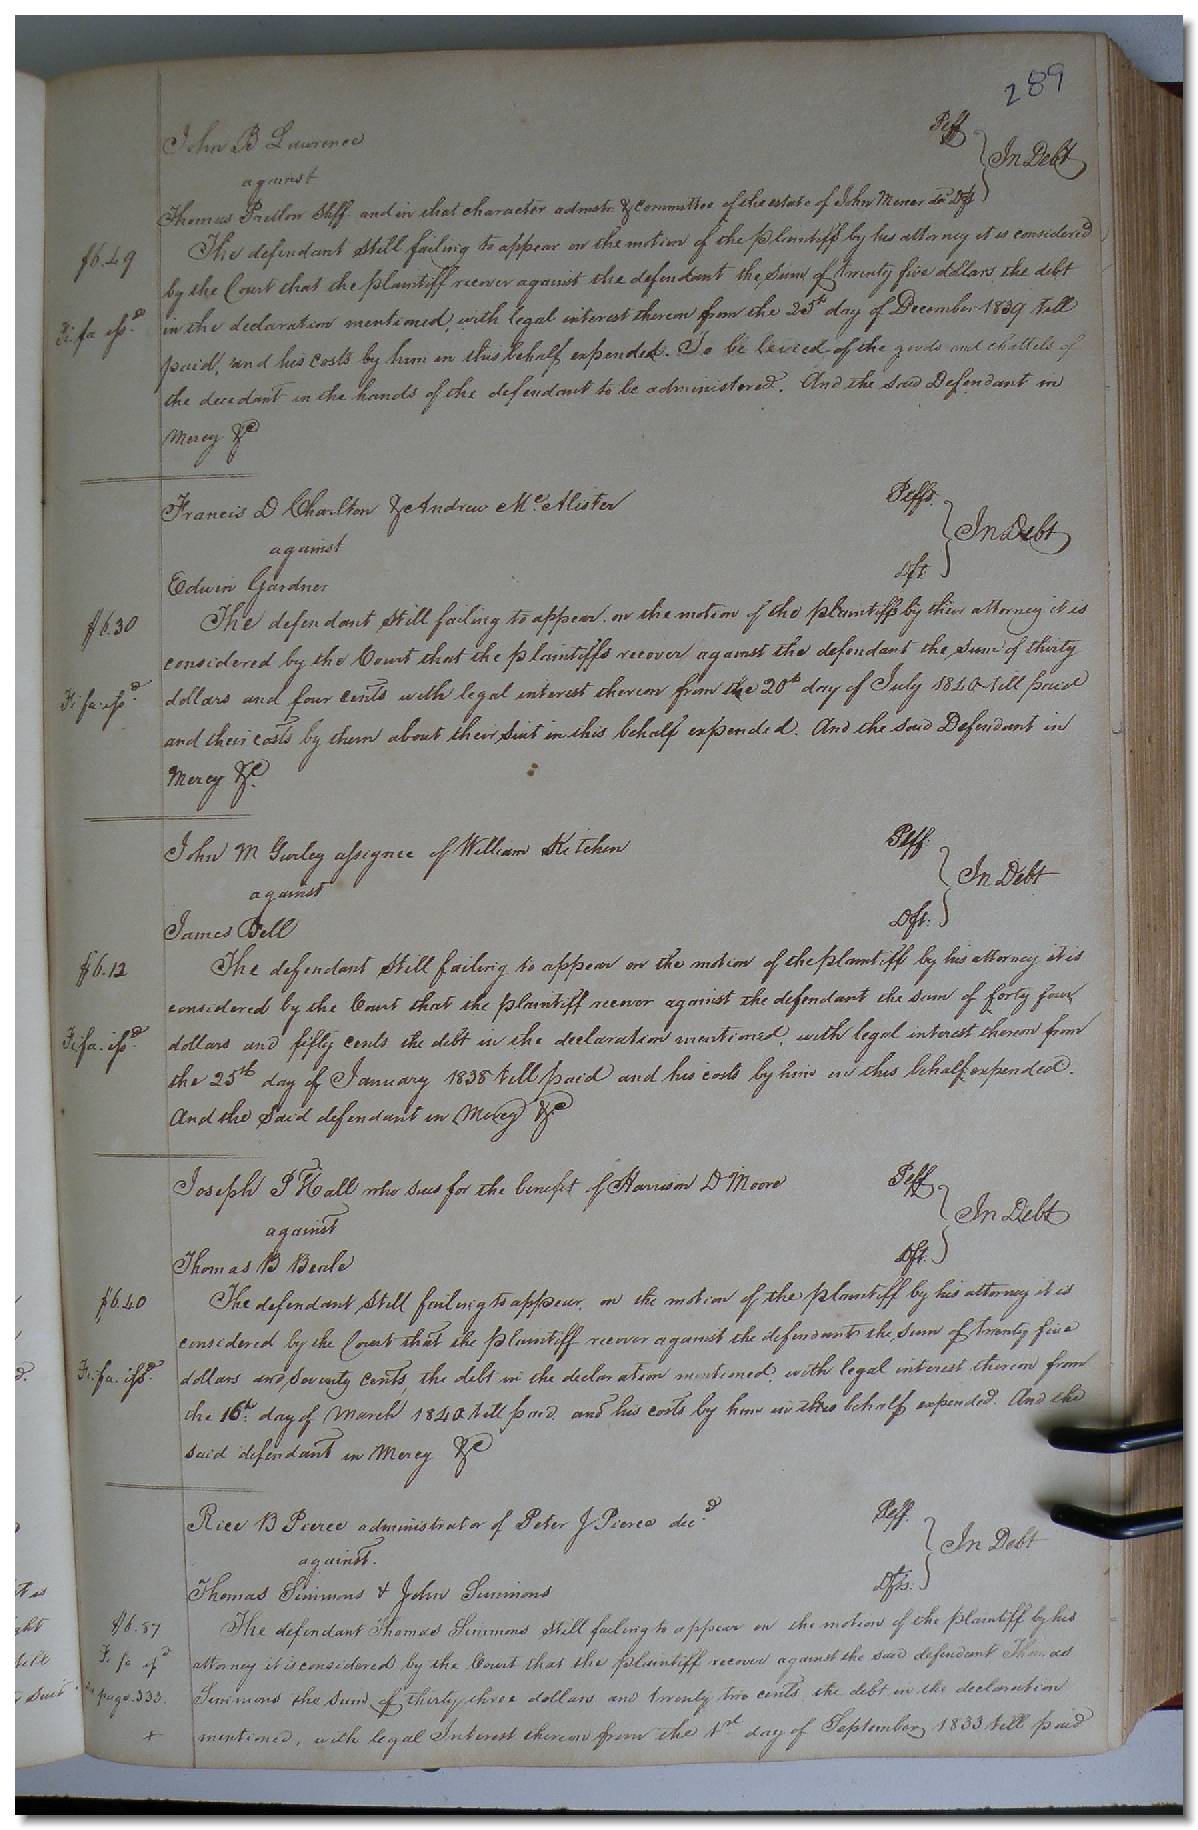 289
John B Lawrence Plff
against In Debt
Thomas Preston Shff. and in that character admstr. & committee of the estate of John Dft
$6.49 The defendant still failing to appear on the motion of the plaintiff by his attorney it is considered
by the Court that the plaintiff recover against the defendant the sum of twenty five dollars the debt
Fi. fa issd in the declaration mentioned, with legal interest thereon from the 25th day of December 1839 till
paid, and his costs by him in this behalf expended. To be levied of the goods and chattels of
the decedant in the hands of the defendant to be administered. And the said Defendant in
Mercy &c
Francis D Charlton & Andrew McAlister Plffs.
against In Debt
Edwin Gardner Dft
$6.30 The defendant still failing to appear on the motion of the plaintiffs by their attorney it is
considered by the Court that the plaintiffs recover against the defendant the sum of thirty
Fi. fa. issd. dollars and four cents with legal interest thereon from the 20th day of July 1840 till paid
and their costs by them about their suit in this behalf expended. And the said Defendant in
Mercy &c.
John M Gurley assignee of William Kitchen Plff.
against In Debt
James Bell Dft.
$6.12 The defendant still failing to appear on the motion of the plaintiff by his attorney it is
considered by the Court that the plaintiff recover against the defendant the sum of forty four
Fi. fa. issd. dollars and fifty cents the debt in the declaration mentioned, with legal interest thereon from
the 25th day of January 1838 till paid and his costs by him in this behalf expended.
And the said defendant in Mercy &c
Joseph P Hall who sues for the benefit of Harrison D Moore Plff.
against In Debt
Thomas B Beale Dft.
$6.40 The defendant still failing to appear, on the motion of the plaintiff by his attorney it is
considered by the Court that the plaintiff recover against the defendant the sum of twenty five
Fi. fa. issd. dollars and seventy cents, the debt in the declaration mentioned, with legal interest thereon from
the 16th. day of March 1840 till paid, and his costs by him in this behalf expended. And the
said defendant in Mercy &c
Rice B Pierce administrator of Peter J Pierce decd. Plff.
against. In Debt
Thomas Simmons & John Simmons Dfts.
$6.87 The defendant Thomas Simmons still failing to appear on the motion of the plaintiff by his
Fi fa isd attorney it is considered by the Court that the plaintiff recover against the said defendant Thomas
page 333. Simmons the sum of thirty three dollars and twenty two cents, the debt in the declaration
+ mentioned, with legal Interest thereon from the 1st day of September 1833 till paid